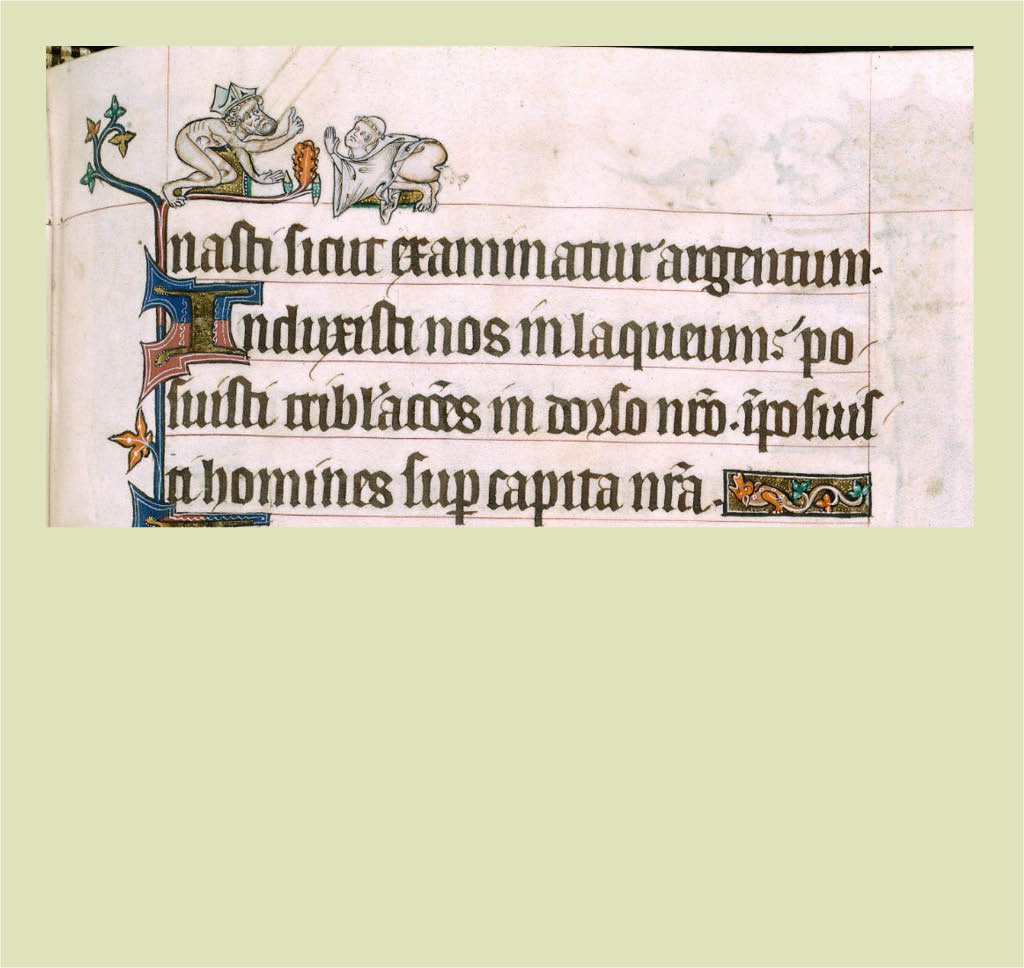 nasti sicut examinatur argentum.
Induxisti nos in laqueum: po
suisti tribl'acōēs in dorso nr̄o. īposuis
ti homines sup̱ capita nr̄a.